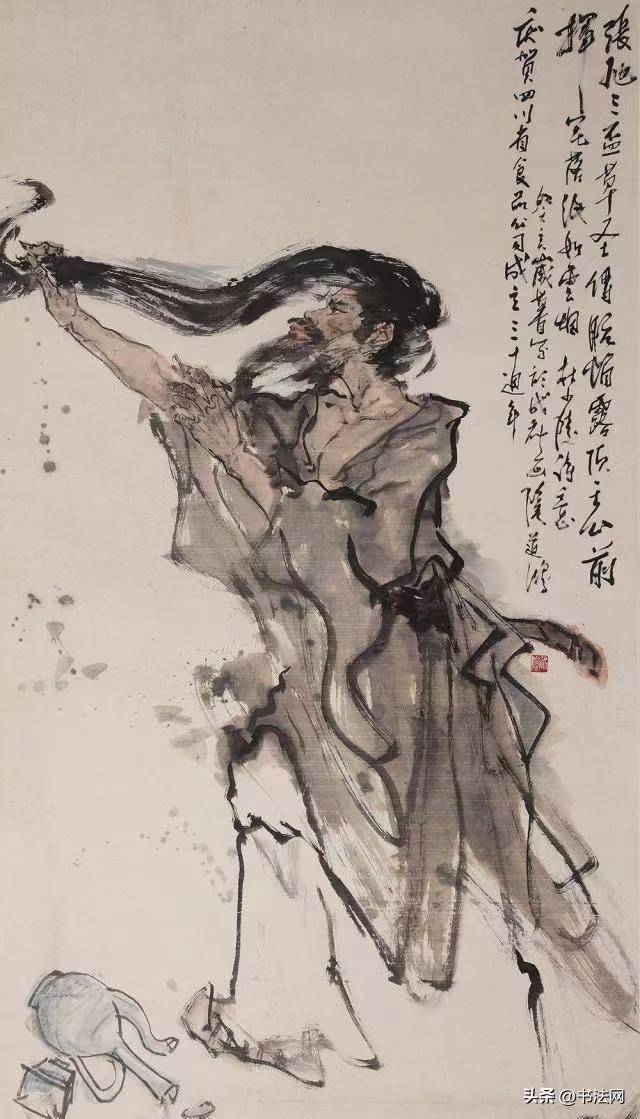 張旭三盃草圣傳脱帽露頂王公前
揮毫落纸如雲烟 杜少陵诗意
癸亥歲暮写於成都画院
庆贺四川省食品公司成立三十週年
头条 @书法网